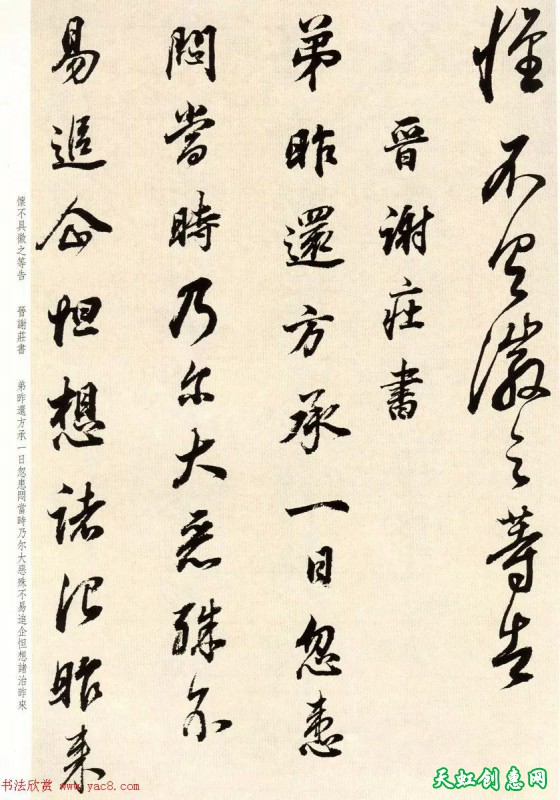 懷不具徽之等告
晉謝莊書
弟昨還方承一日忽患
悶當時乃尔大惡殊不
易追企怛想諸治昨来
懷不具徽之等告 晉謝莊書 弟昨還方承一日忽患悶當時乃尔大惡殊不易追企怛想諸治昨來
书法欣赏 www.yac8.com
天虹创意网